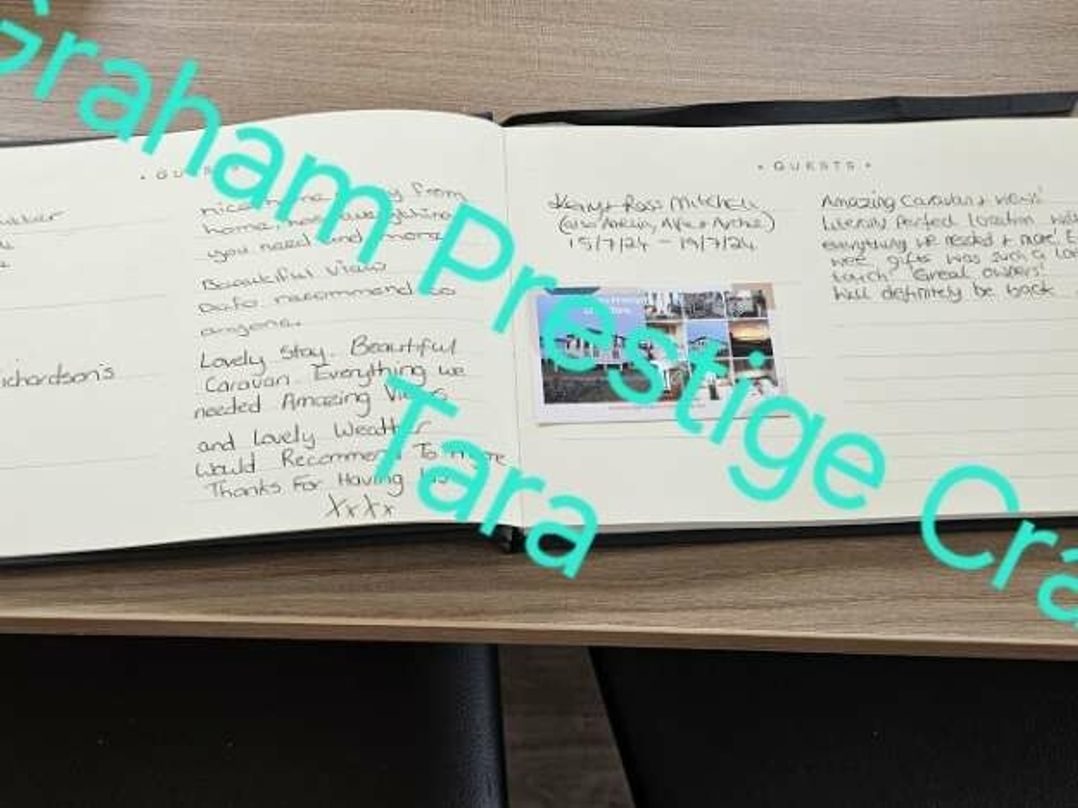 Graham Prestige Cra
Tara
• GU
nice home from
home, has everything
you need and more
Beautiful View
Defo recommend to
anyone.
Lovely Stay. Beautiful
Caravan. Everything we
needed Amazing Views
and Lovely Weather
Would Recommend To
Thanks For Having Us
XxXx
ichardson's
• GUESTS •
Ross Mitchell
15/7/24 - 19/7/24
Amazing Caravan + views!
Literally Perfect location with
everything we needed + more! E
wee gifts was such a lo
touch. Great owners!
Will definitely be back